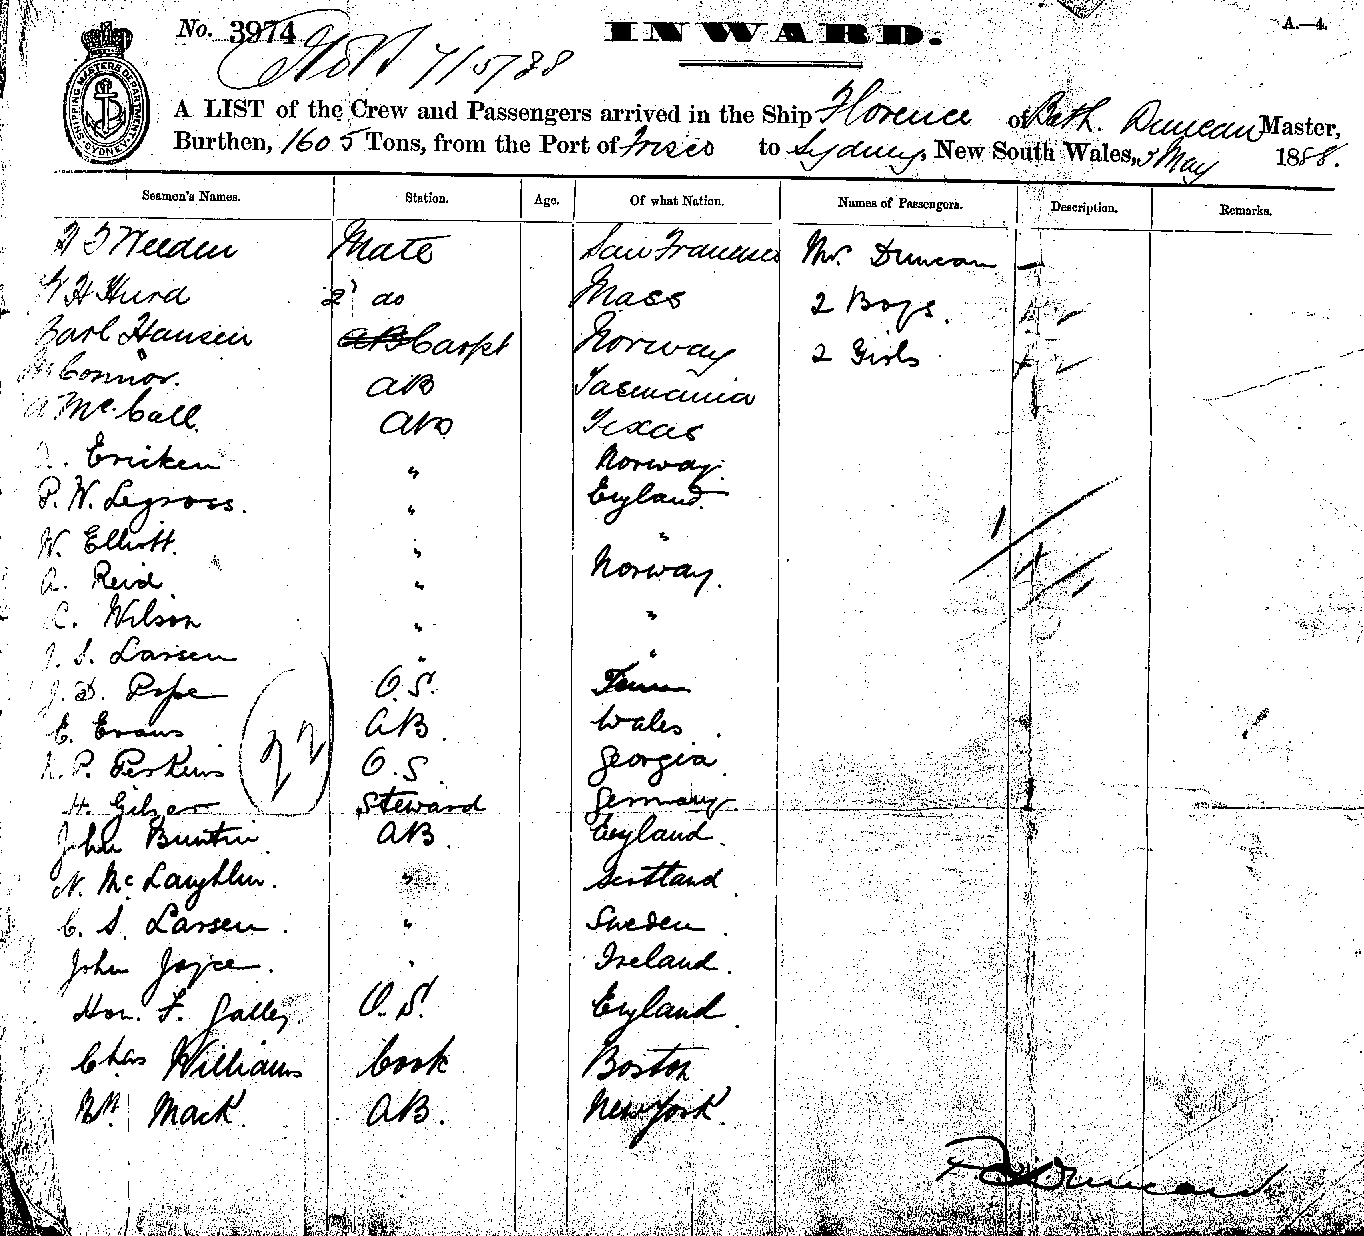 No. 3974
INWARD.
A.—4.
7/5/88
SHIPPING MASTERS DEPARTMENT SYDNEY
A LIST of the Crew and Passengers arrived in the Ship Florence of Bath. Duncan Master,
Burthen, 1605 Tons, from the Port of Frisco to Sydney, New South Wales, 5 May 1888.
Seamen's Names. Station. Age. Of what Nation. Names of Passengers. Description. Remarks.
Weeden Mate San Francisco Mr. Duncan
H Hurd 2' do Mass 2 Boys.
Carl Hansen AB Carpt Norway 2 Girls
Connor. AB Tasmania
A McCall. AB Texas
Ericken " Norway.
P. W. Legross. " England.
W. Elliott. " "
A. Reid " Norway.
C. Wilson " "
J. S. Larsen " "
J. D. Pope O.S.
E. Evans AB. Wales.
P. Perkins O.S. Georgia.
22
H. Gilzer Steward Germany
John Buntin. AB. England.
N. McLaughlin. " Scotland.
C. S. Larsen. " Sweden.
John Joyce. " Ireland.
F. Galley. O.S. England.
Chas Williams Cook Boston
Wm Mack. AB. New York.
Duncan